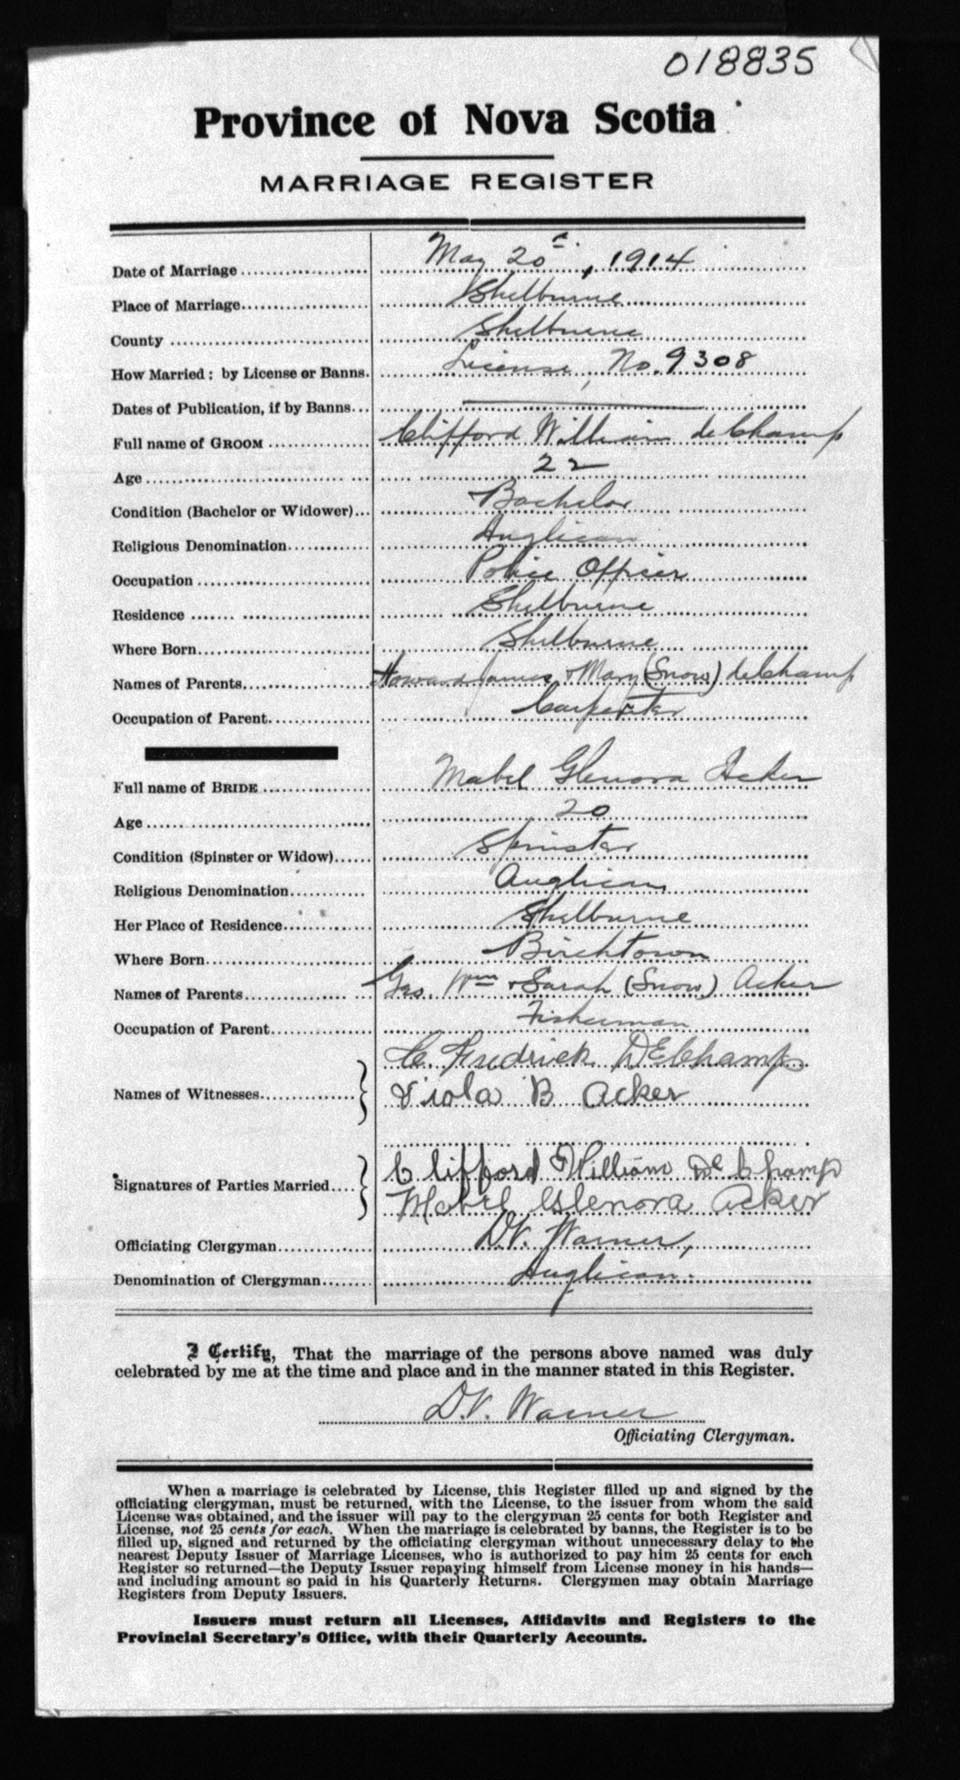 018835
Province of Nova Scotia
MARRIAGE REGISTER
Date of Marriage May 20th, 1914
Place of Marriage Shelburne
County Shelburne
How Married: by License or Banns. License, No. 9308
Dates of Publication, if by Banns
Full name of GROOM Clifford William deChamp
Age 22
Condition (Bachelor or Widower) Bachelor
Religious Denomination Anglican
Occupation Police Officer
Residence Shelburne
Where Born Shelburne
Names of Parents Howard James & Mary (Snow) deChamp
Occupation of Parent Carpenter
Full name of BRIDE Mabel Glenora Acker
Age 20
Condition (Spinster or Widow) Spinster
Religious Denomination Anglican
Her Place of Residence Shelburne
Where Born Birchtown
Names of Parents Geo. Wm & Sarah (Snow) Acker
Occupation of Parent Fisherman
C. Fredrick DEChamp
Names of Witnesses Viola B Acker
Clifford William DeChamp
Signatures of Parties Married Mabel Glenora Acker
Officiating Clergyman D.V. Warner,
Denomination of Clergyman Anglican.
I Certify, That the marriage of the persons above named was duly
celebrated by me at the time and place and in the manner stated in this Register.
D.V. Warner
Officiating Clergyman.
When a marriage is celebrated by License, this Register filled up and signed by the
officiating clergyman, must be returned, with the License, to the issuer from whom the said
License was obtained, and the issuer will pay to the clergyman 25 cents for both Register and
License, not 25 cents for each. When the marriage is celebrated by banns, the Register is to be
filled up, signed and returned by the officiating clergyman without unnecessary delay to the
nearest Deputy Issuer of Marriage Licenses, who is authorized to pay him 25 cents for each
Register so returned—the Deputy Issuer repaying himself from License money in his hands—
and including amount so paid in his Quarterly Returns. Clergymen may obtain Marriage
Registers from Deputy Issuers.
Issuers must return all Licenses, Affidavits and Registers to the
Provincial Secretary's Office, with their Quarterly Accounts.